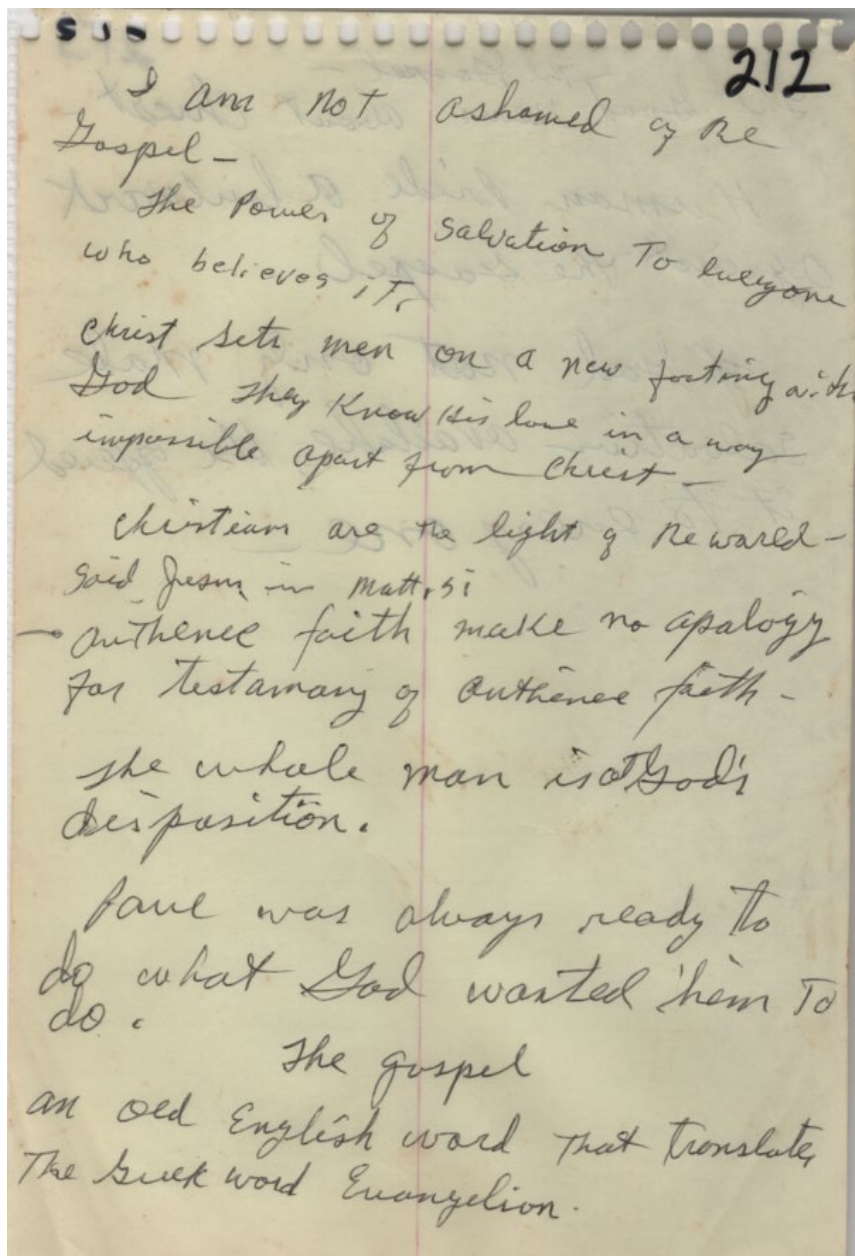 212
I am not ashamed of the
Gospel –
The Power of Salvation To everyone
who believes it,
Christ sets men on a new footing with
God They Know His love in a way
impossible apart from Christ –
Christians are the light of the world –
said Jesus in Matt. 5:
authence faith make no apology
for testamony of authence faith –
The whole man is at God's
disposition.
Paul was always ready to
do what God wanted him To
do.
The gospel
an old English word that translates
The Greek word Evangelion.